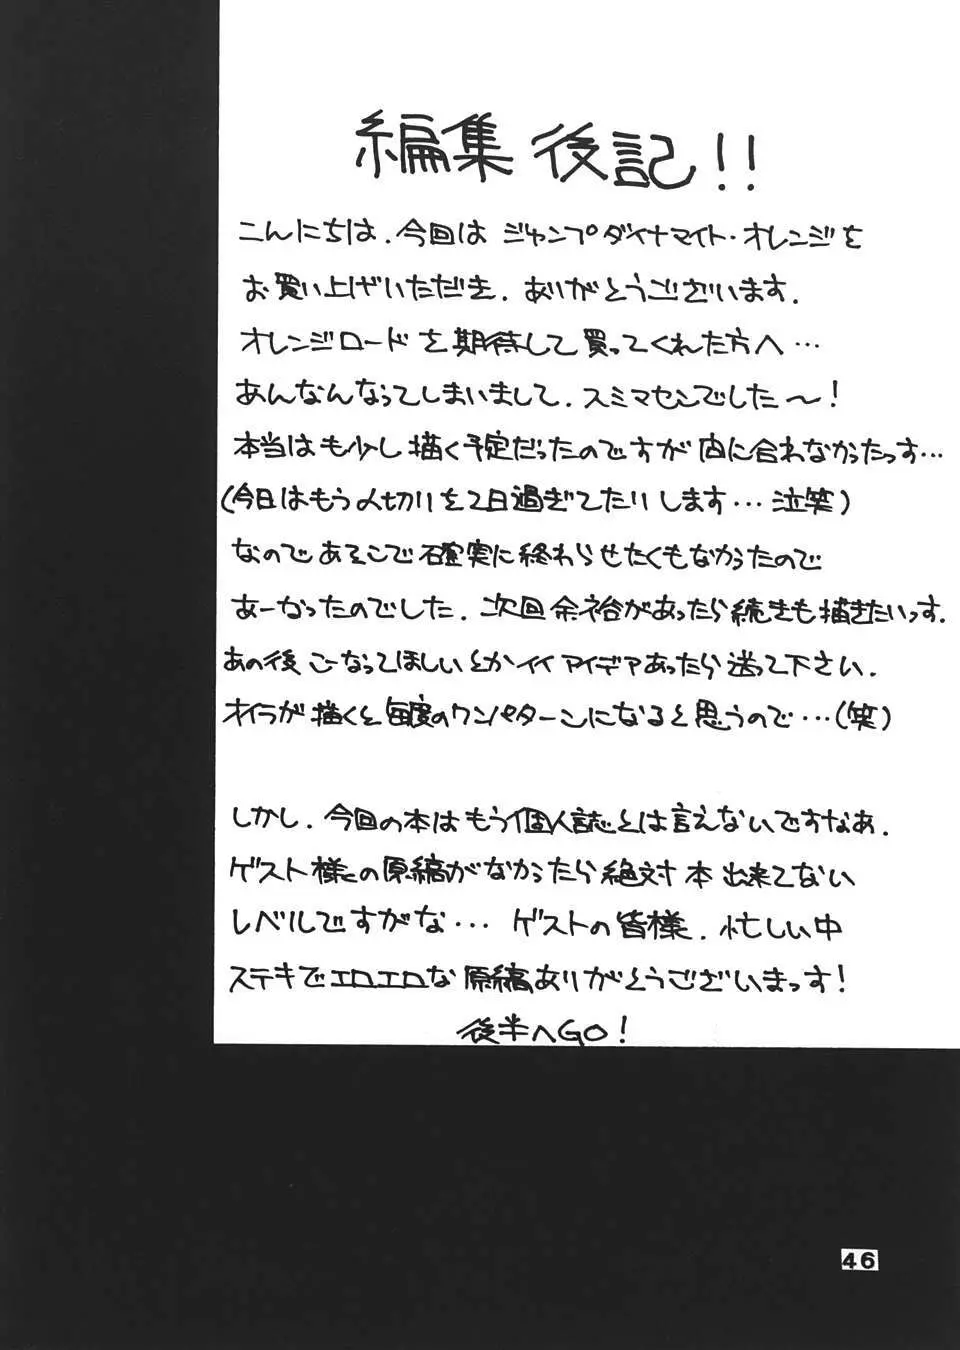 編集後記!!
こんにちは.今回はジャンプダイナマイト・オレンジを
お買い上げいただき.ありがとうございます.
オレンジロードを期待して買ってくれた方へ…
あんなんなってしまいまして.スミマセンでした〜!
本当はも少し描く予定だったのですが間に合わなかったっす…
(今日はもう〆切りを2日過ぎてたりします…泣笑)
なのであそこで確実に終わらせたくもなかったので
あーなったのでした.次回余裕があったら続きも描きたいっす.
あの後こーなってほしいとかイイアイデアあったら送って下さい.
オイラが描くと毎度のワンパターンになると思うので…(笑)
しかし.今回の本はもう個人誌とは言えないですなぁ.
ゲスト様の原稿がなかったら絶対本出来てない
レベルですがな…ゲストの皆様.忙しい中
ステキでエロエロな原稿ありがとうございまっす!
後半へGO!
46